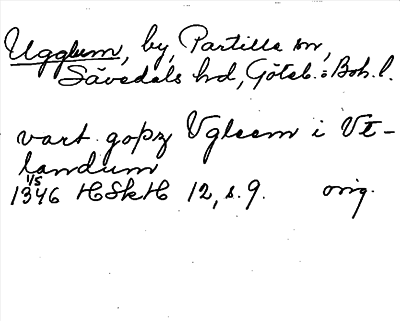 Ugglum, by, Partille sn,
Sävedals hd, Göteb. o Boh. l.
vart gopz Vgleem i Vt-
landum
1/5
1346 HSkH 12, s. 9. orig.